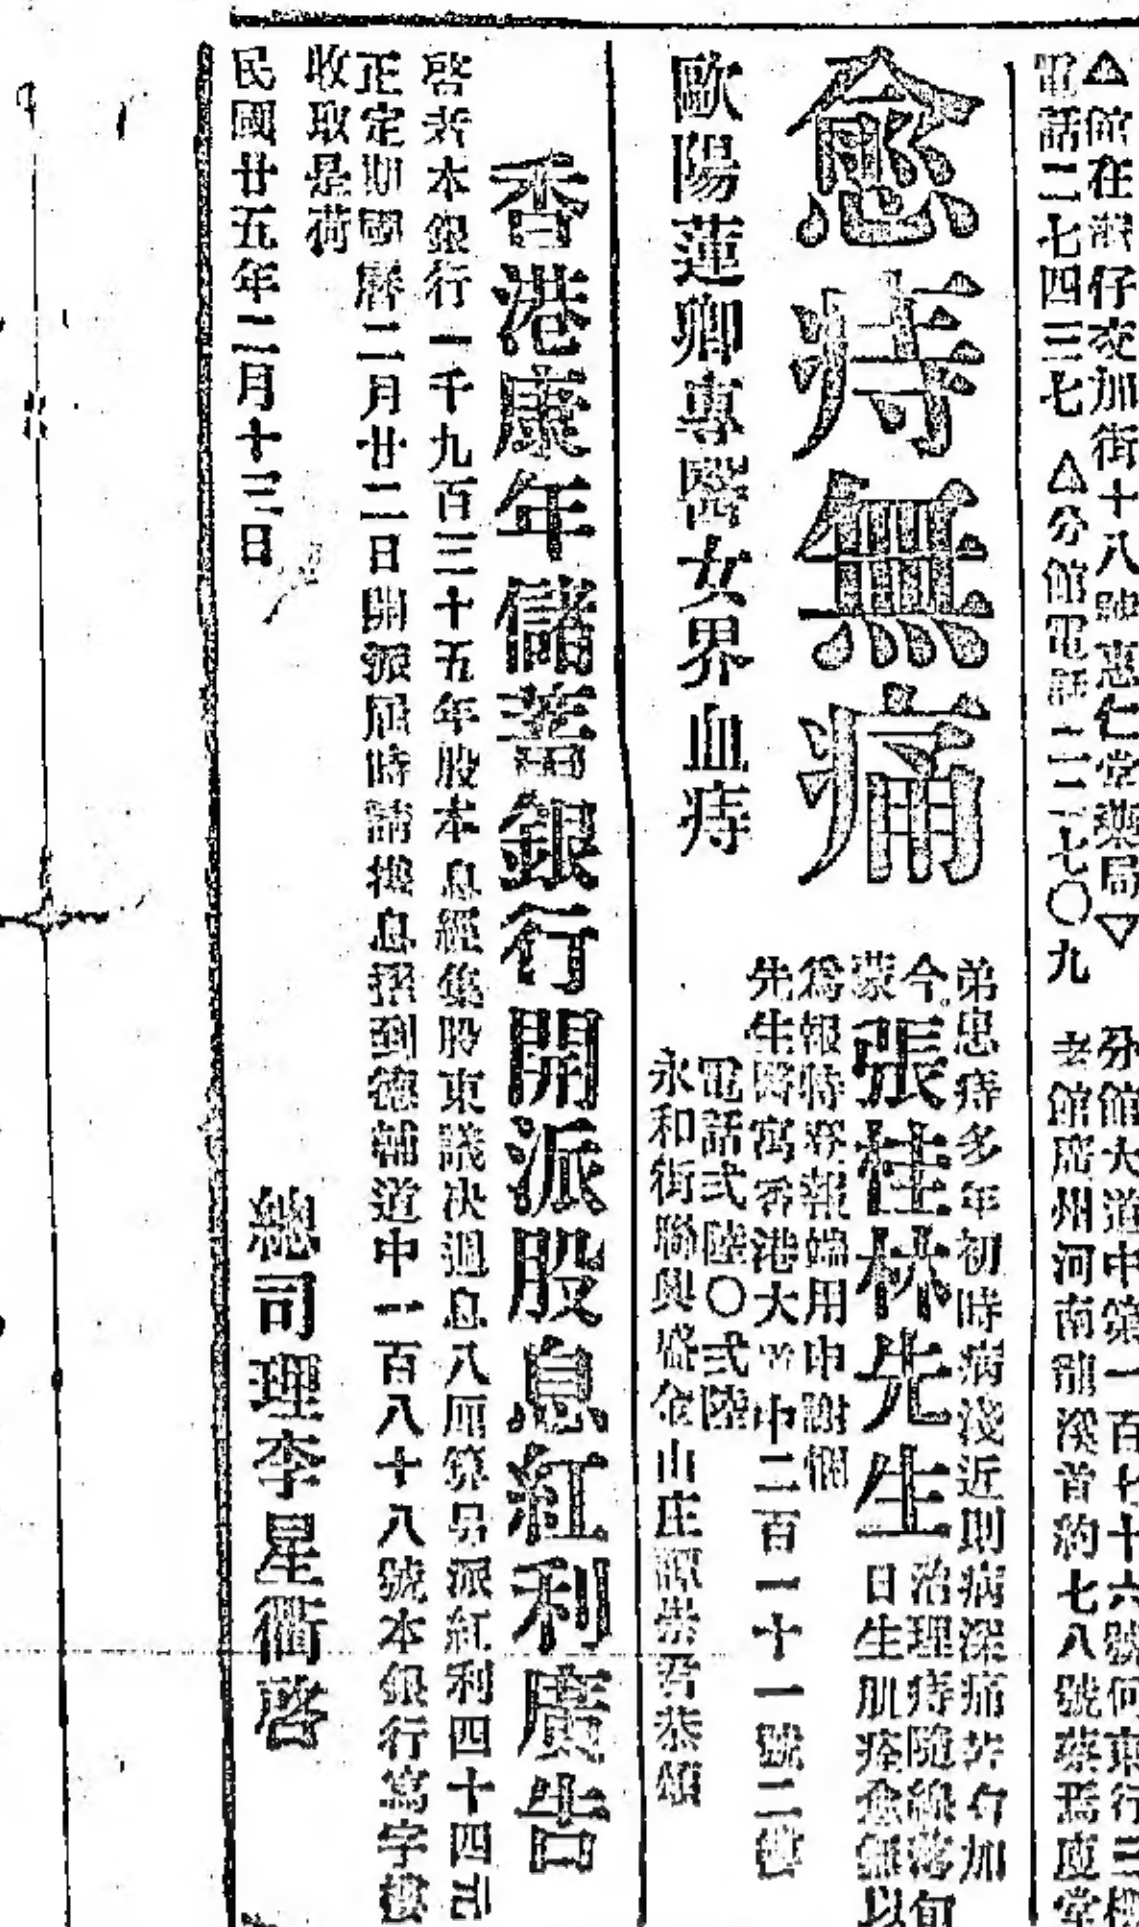 △館在灣仔交加街十八號惠仁堂藥局▽
電話二七四三七 △分館電話二一二七〇九
分館大道中第一百七十六號何東行三樓
館廣州河南龍溪首約七八號蔡焉度堂
愈痔無痛
弟患痔多年初時病淺近則病深痛苦有加
今蒙張桂林先生治理痔隨線落旬
日生肌痊愈無以
為報特登報端用申謝悃
先生醫寓香港大道中二百一十一號二樓
電話弍陸〇弍陸
永和街聯興盛金山庄譚崇君恭頌
歐陽蓮卿專醫女界血痔
香港康年儲蓄銀行開派股息紅利廣告
啓者本銀行一千九百三十五年股本息經集股東議决週息八厘算另派紅利四十四
正定期國曆二月廿二日開派屆時請携息摺到德輔道中一百八十八號本銀行寫字樓
收取是荷
民國廿五年二月十三日
總司理李星衢啓